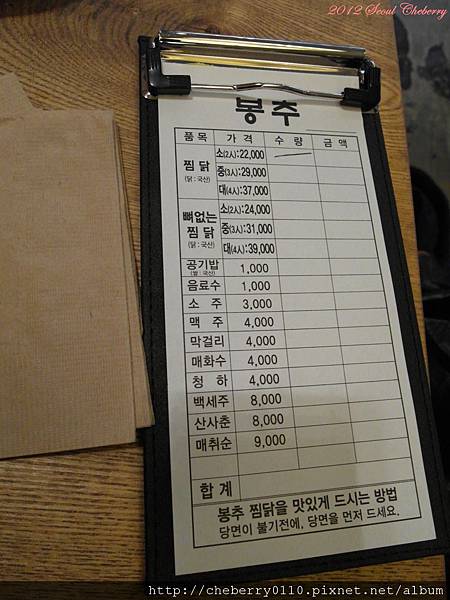 2012 Seoul Cheberry
봉추
품목 가격 수량 금액
찜닭 (닭:국산) 소(2人):22,000
중(3人):29,000
대(4人):37,000
뼈없는 찜닭 (닭:국산) 소(2人):24,000
중(3人):31,000
대(4人):39,000
공기밥 (쌀:국산) 1,000
음료수 1,000
소주 3,000
맥주 4,000
막걸리 4,000
매화수 4,000
청하 4,000
백세주 8,000
산사춘 8,000
매취순 9,000
합계
봉추 찜닭을 맛있게 드시는 방법
당면이 불기전에, 당면을 먼저 드세요.
http://cheberry0110.pixnet.net/album